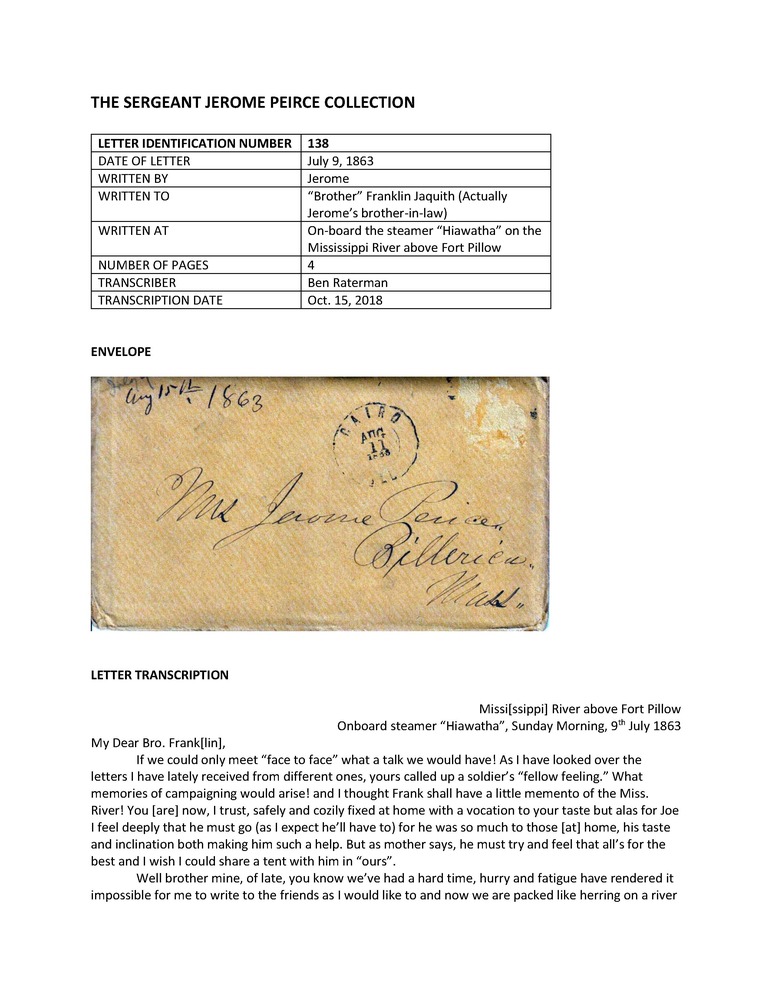 THE SERGEANT JEROME PEIRCE COLLECTION
LETTER IDENTIFICATION NUMBER 138
DATE OF LETTER July 9, 1863
WRITTEN BY Jerome
WRITTEN TO “Brother” Franklin Jaquith (Actually
Jerome’s brother-in-law)
WRITTEN AT On-board the steamer “Hiawatha” on the
Mississippi River above Fort Pillow
NUMBER OF PAGES 4
TRANSCRIBER Ben Raterman
TRANSCRIPTION DATE Oct. 15, 2018
ENVELOPE
Aug 15th 1863
CAIRO
AUG
11
1863
ILL
Mrs Jerome Peirce
Billerica
Mass
LETTER TRANSCRIPTION
Missi[ssippi] River above Fort Pillow
Onboard steamer “Hiawatha”, Sunday Morning, 9th July 1863
My Dear Bro. Frank[lin],
If we could only meet “face to face” what a talk we would have! As I have looked over the
letters I have lately received from different ones, yours called up a soldier’s “fellow feeling.” What
memories of campaigning would arise! and I thought Frank shall have a little memento of the Miss.
River! You [are] now, I trust, safely and cozily fixed at home with a vocation to your taste but alas for Joe
I feel deeply that he must go (as I expect he’ll have to) for he was so much to those [at] home, his taste
and inclination both making him such a help. But as mother says, he must try and feel that all’s for the
best and I wish I could share a tent with him in “ours”.
Well brother mine, of late, you know we’ve had a hard time, hurry and fatigue have rendered it
impossible for me to write to the friends as I would like to and now we are packed like herring on a river